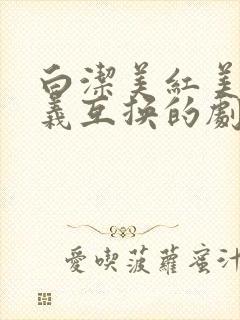 白潔美紅美
義互换的劇
愛喫菠蘿蜜汁